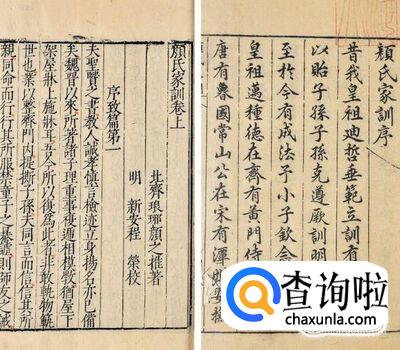 顏氏家訓序
昔我皇祖迪哲垂範立訓有
以貽子孫子孫克遵厥訓明
至於今有成法子小子欽念
皇祖邁種德在齊有黃門侍
唐有魯國常山公在宋有潭
顏氏家訓卷上
北齊瑯琊顏之推著
明 新安程榮校
序致篇第一
夫聖賢之書教人誠孝慎言檢迹立身揚名亦已備
矣魏晉以來所著諸子理重事複遞相模斆猶屋下
架屋牀上施牀耳吾今所以復為此者非敢軌物範
世也業以整齊門內提撕子孫夫同言而信信其所
親同命而行行其所服禁童子之暴謔則師友之誡
查询啦
chaxunla.com